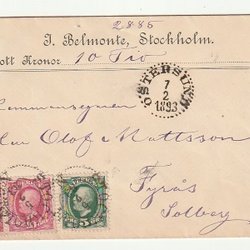 2885
J. Belmonte, Stockholm.
ott Kronor 10 Tio
ÖSTERSUND
7
2
1893
Olof Mattsson
Fyrås
Solberg